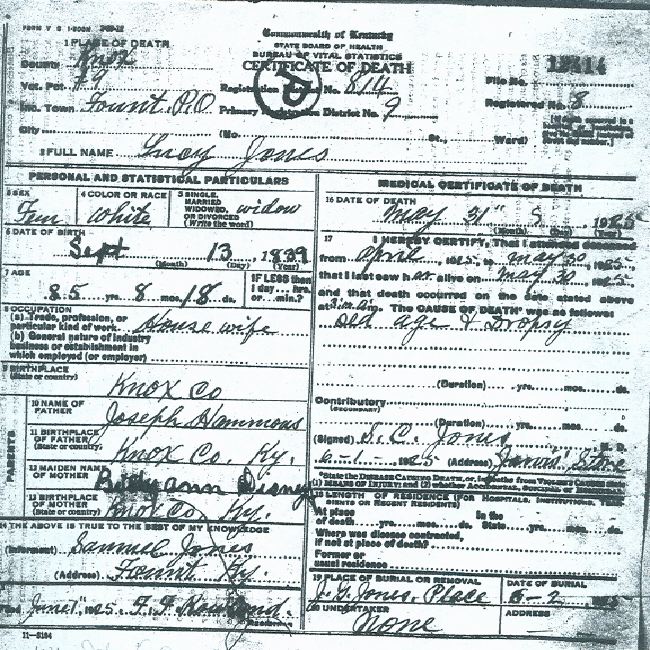 Commonwealth of Kentucky
STATE BOARD OF HEALTH
BUREAU OF VITAL STATISTICS
CERTIFICATE OF DEATH
1 PLACE OF DEATH
County Knox
Vot. Pct. #9
Inc. Town Fount P.O.
City
Registration District No. 814
Primary Registration District No. 9
File No.
Registered No. 8
(No. St., Ward)
2 FULL NAME Lucy Jones
PERSONAL AND STATISTICAL PARTICULARS
3 SEX Fem
4 COLOR OR RACE White
5 SINGLE, MARRIED WIDOWED, OR DIVORCED (Write the word) widow
6 DATE OF BIRTH Sept 13, 1839
(Month) (Day) (Year)
7 AGE 85 yrs. 8 mos. 18 ds.
IF LESS than 1 day... hrs. or...min.?
8 OCCUPATION
(a) Trade, profession, or particular kind of work House wife
(b) General nature of industry
business or establishment in
which employed (or employer)
9 BIRTHPLACE
(State or country) Knox Co
PARENTS
10 NAME OF FATHER Joseph Hammons
11 BIRTHPLACE OF FATHER (State or country) Knox Co, Ky.
12 MAIDEN NAME OF MOTHER ann Disney
13 BIRTHPLACE OF MOTHER (State or country) Knox Co. Ky.
14 THE ABOVE IS TRUE TO THE BEST OF MY KNOWLEDGE
(Informant) Samuel Jones
(Address) Fount Ky.
June 1, 1925
MEDICAL CERTIFICATE OF DEATH
16 DATE OF DEATH May 31" 1925
(Month) (Day) (Year)
17 I HEREBY CERTIFY, That I attended deceased
from April, 1925, to may 30, 1925,
that I last saw her alive on may 30, 1925,
and that death occurred on the date stated above
at m. The CAUSE OF DEATH was as follows:
Old age & Dropsy
(Duration) yrs. mos. ds.
Contributory
(SECONDARY)
(Duration) yrs. mos. ds.
(Signed) S. C. Jones M. D.
6-1 1925 (Address) Jones' Store
18 LENGTH OF RESIDENCE (FOR HOSPITALS, INSTITUTIONS, TRANSIENTS OR RECENT RESIDENTS)
At place of death yrs. mos. ds. In the State yrs. mos. ds.
Where was disease contracted,
if not at place of death?
Former or
usual residence
19 PLACE OF BURIAL OR REMOVAL J. G. Jones, Place
DATE OF BURIAL 6-2
20 UNDERTAKER None
ADDRESS
11-3184